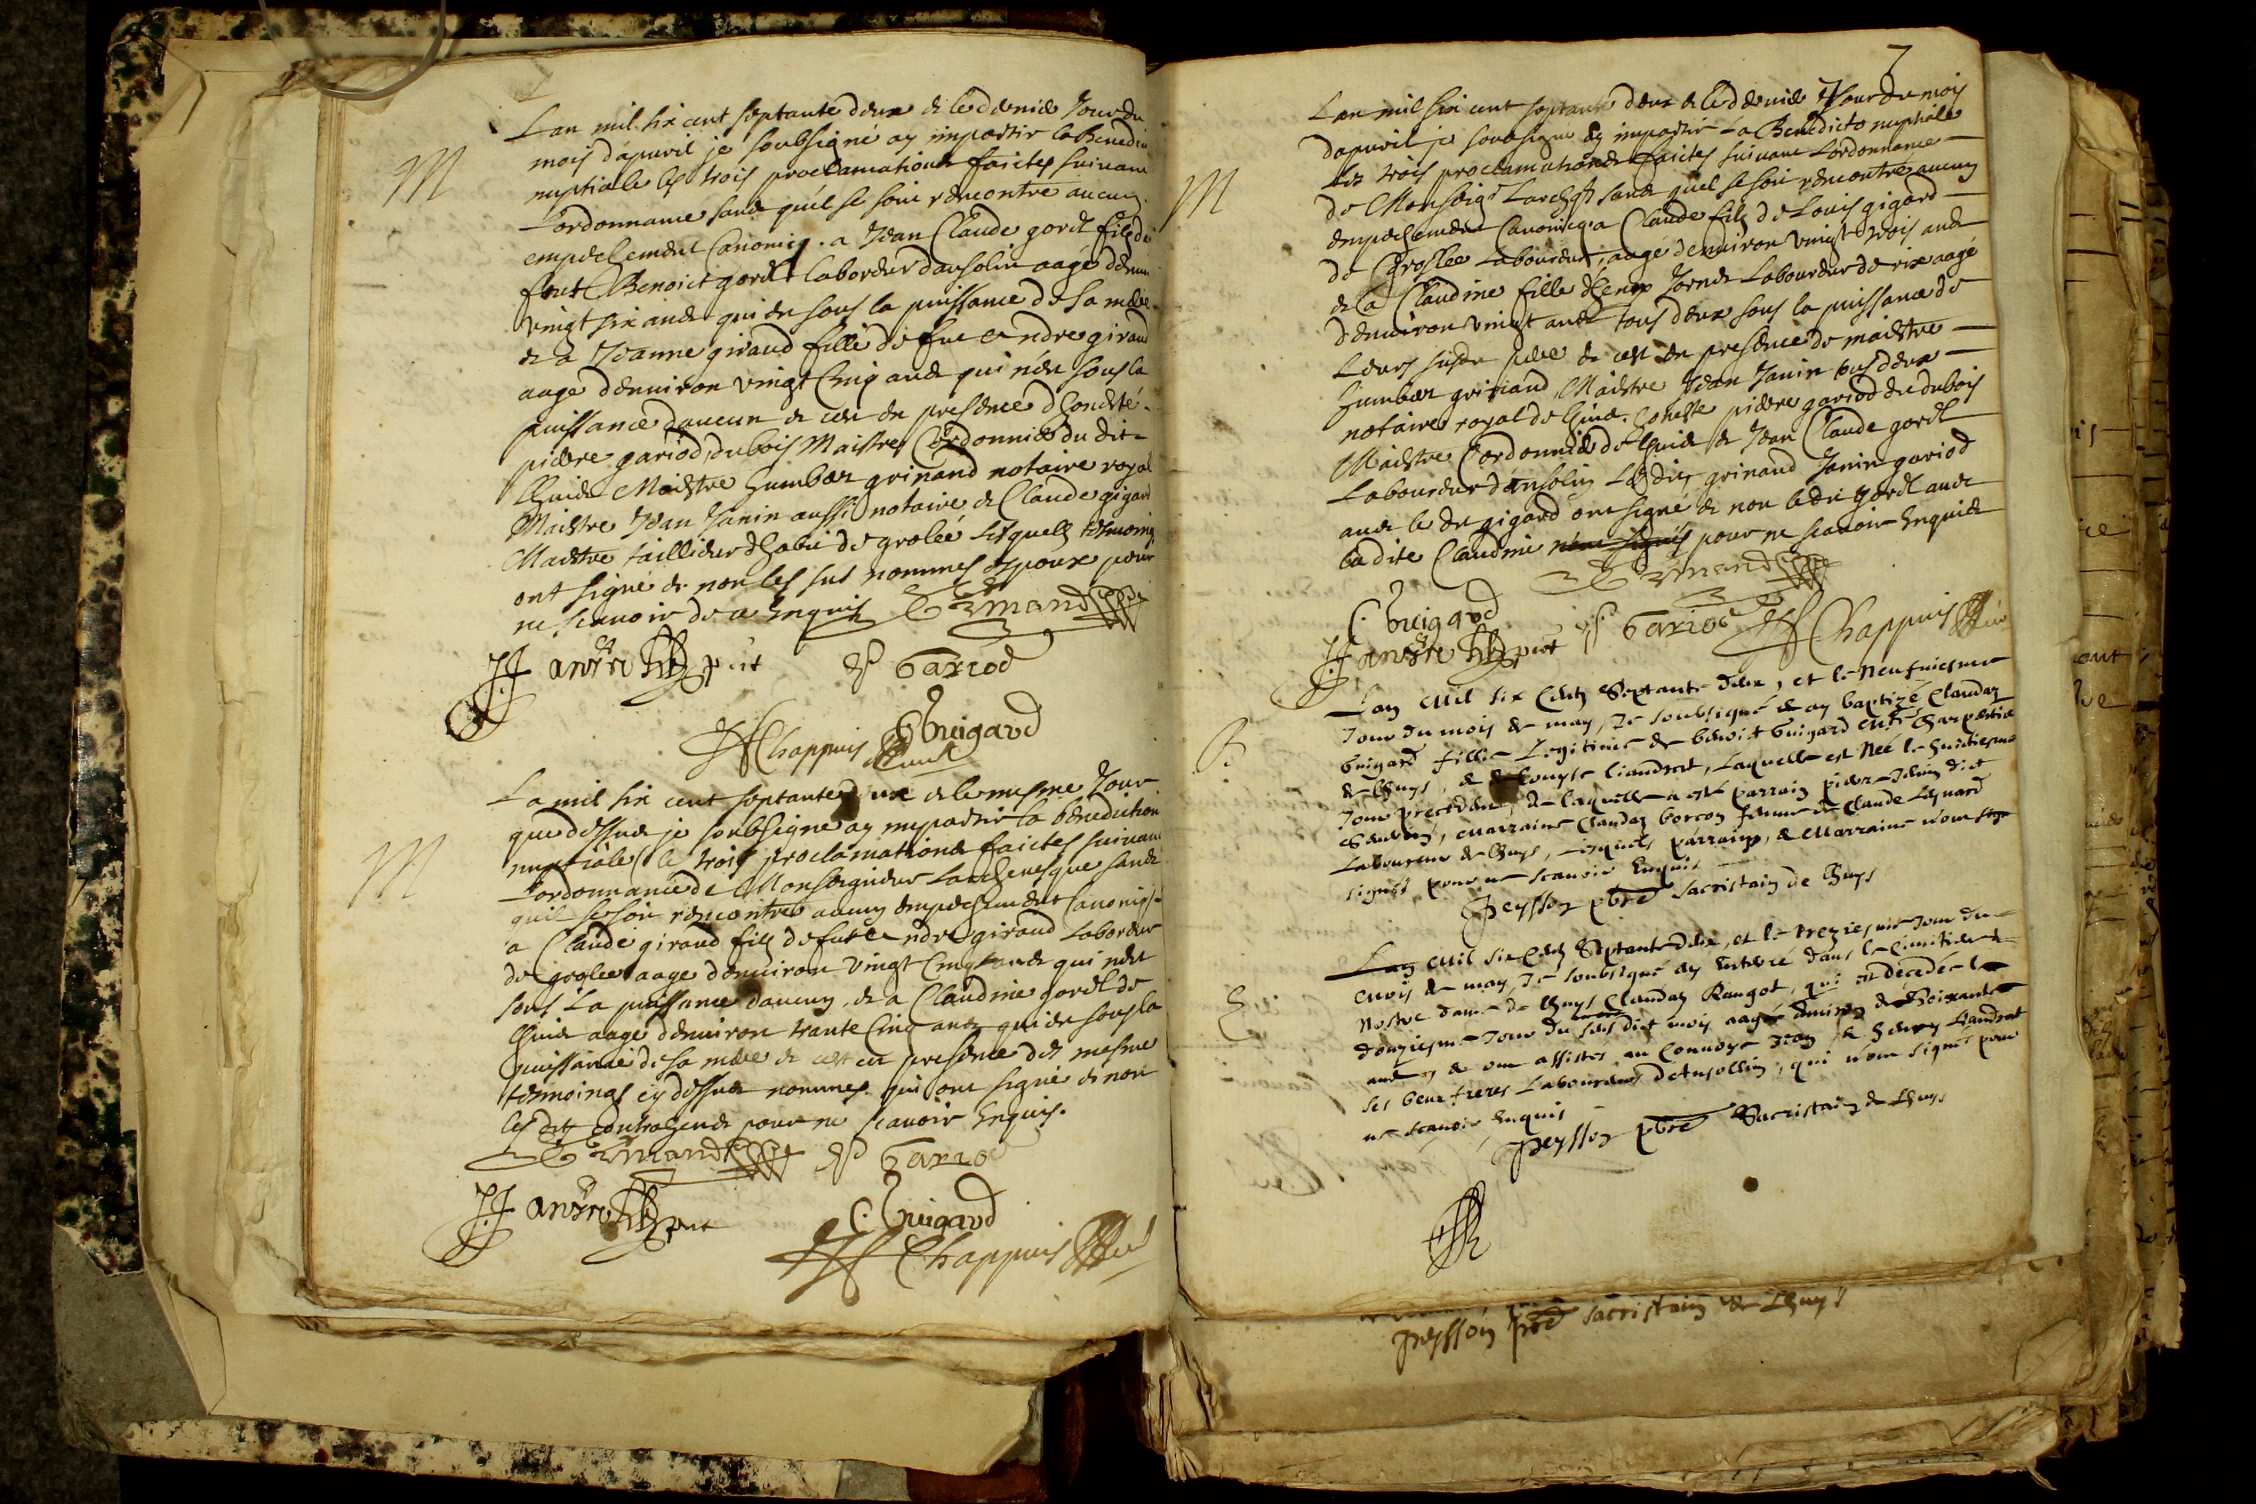 M
Lan mil six cent septante deux & le dernier Jour du
mois dapuril je soubsigné ay impartir la Benedin
nuptiale les trois proclamations faictes suivant
Lordonnance sans quil se soit rencontré aucun
empechement Canonicq. a Jean Claude gordt filz de
feut Benoict gordt laboreur dansolin aagé denui
vingt six ands qui est sous la puissance de sa mere
& a Jeanne giraud fille de fut Andre giraud
aagé denuiron vingt Cinq ands qui nest sous la
puissance daucun & cest en presence dhoneste
pierre gariod dubois Maistre Cordonnier du dit
Lhuis Maistre humber grinand notaire royal
Maistre Jean Janin aussi notaire & Claude gigard
Maistre taillieur dhabit de grolée lesquels tesmoing
ont signé & non les sus nommes espoux pour
ne scauoir de ce Enquis Grinand
P Gariod
Chappuis C Guigard
M
La mil six cent septante deux & le mesme Jour
que dessus je soubsigne ay impartir la benediction
nuptiale les trois proclamations faictes suivant
Lordonnance de Monseigneur Larcheuesque sans
quil se soit rencontre aucun empechement Canonicq
a Claude giraud filz de fut Andre giraud Laboreur
de grolee aage denuiron vingt Cinq ands qui nest
sous La puissance daucun & a Claudine gordt de
Lhuis aagé denuiron trante Cinq ands qui est sous la
puissance de sa mere & cest en presence des mesme
tesmoings cy dessus nommes qui ont signé & non
les dits contrahends pour ne scauoir Enquis.
Grinand P Gariod
C. Guigard
Chappuis
7
M
Lan mil six cent septante deux & le dernier Jour du mois
dapuril je soubsigne ay impartir La Benedicto nuptiale
les trois proclamations faictes suivant Lordonnance
de Monseigr Larchesq sans quil se soit rencontre aucun
empechement Canonicq a Claude filz de Louis gigard
de Grollee Laboureur, aagé denuiron vingt trois ands
& a Claudine fille dhenry Labourdeur de rix aagé
denuiron vingt ands tous deux sous la puissance de
Leurs susdt pere & cest en presence de maistre
humber grinand Maistre Jean Janin tous deux
notaires royal de Lhuis. honeste pierre gariod du dubois
Maistre Cordonnier de Lhuis & Jean Claude gordt
Labourdeur dansolin Lesdits grinand Janin gariod
auec le dit gigard ont signé & non ledit gordt auec
ladite Claudine n'ont signés pour ne scauoir Enquis
Grinand
C. Guigard
P Gariod Chappuis
B
Lan Mil six Cents Septante deux, et le Neufuiesme
Jour du mois de may, Je soubsigné & ay baptizé Claudaz
Guigard fillie Legitime de benoist Guigard Me Charpentier
de Lhuys, & de Louyse Liandrat, Laquelle est Neé le huictiesme
Jour precedent, de laquelle a esté parrain pierre Janin dict
, Marraine Claudaz borcon femme de Claude
Laboureur de Lhuys, Lesquels parrains, & Marraine n'ont
signés pour ne scauoir Enquis
Peysson pbre Sacristain de Lhuys
E
Lan Mil six Cents Septante deux, et le treziesme Jour du
Mois de may, Je soubsigné ay Enterré dans le cimitiere de
Nostre dame de Lhuys Claudaz Rangot, qui est decedée le
douziesme Jour du susdict mois aageé denuiron de soixante
ans & ont assistés au Conuoye Jean & henry Liandrat
ses beaux freres Laboureurs dAnsollin, qui n'ont signés pour
ne scauoir Enquis
Peysson pbre Sacristain de Lhuys
Peysson pbre Sacristain de Lhuys